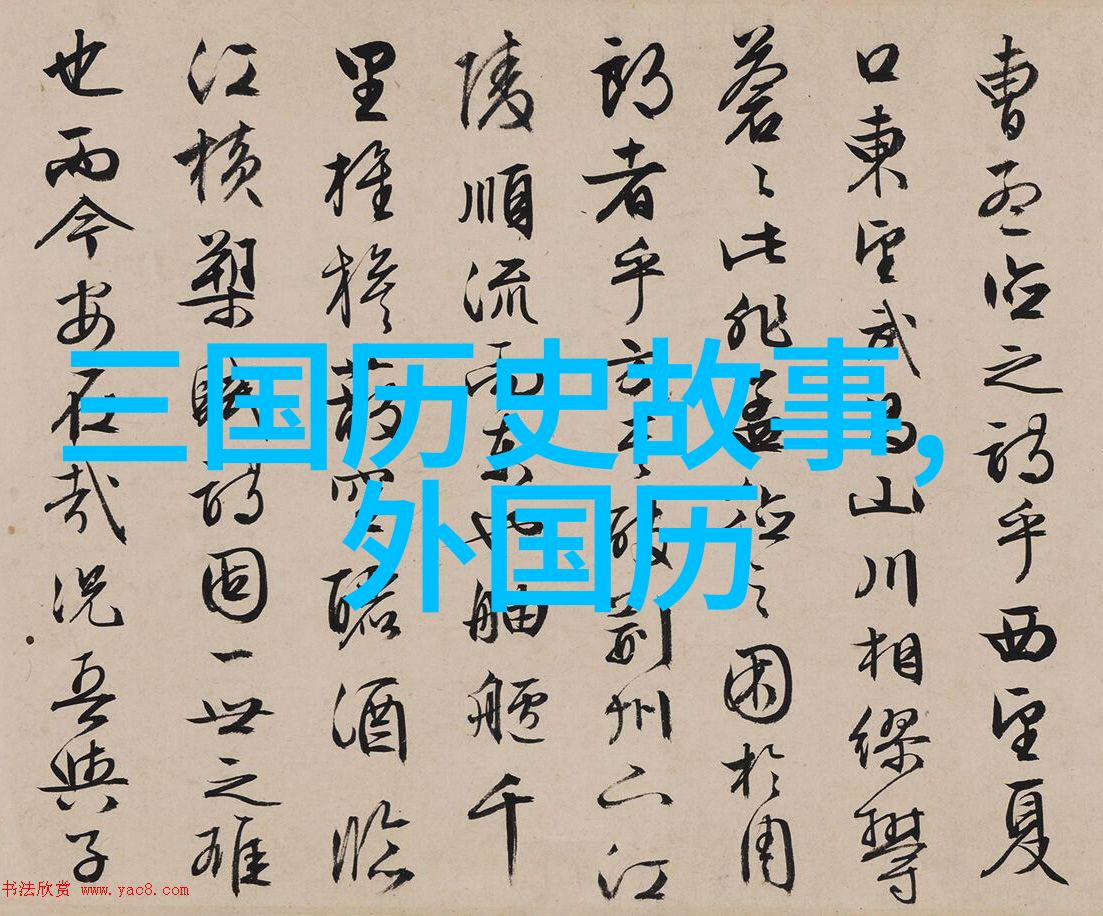 曹孟德之詩乎西望夏
口東望武昌山川相繆鬱
蒼〻此非孟德之困於周
郎者乎方其破荊州下江
陵順流而東也舳艫千
里旌旗蔽空釃酒臨
江橫槊賦詩固一世之雄
也而今安在哉況吾與子
三国历史故事,
外国历
书法欣赏 www.yac8.com